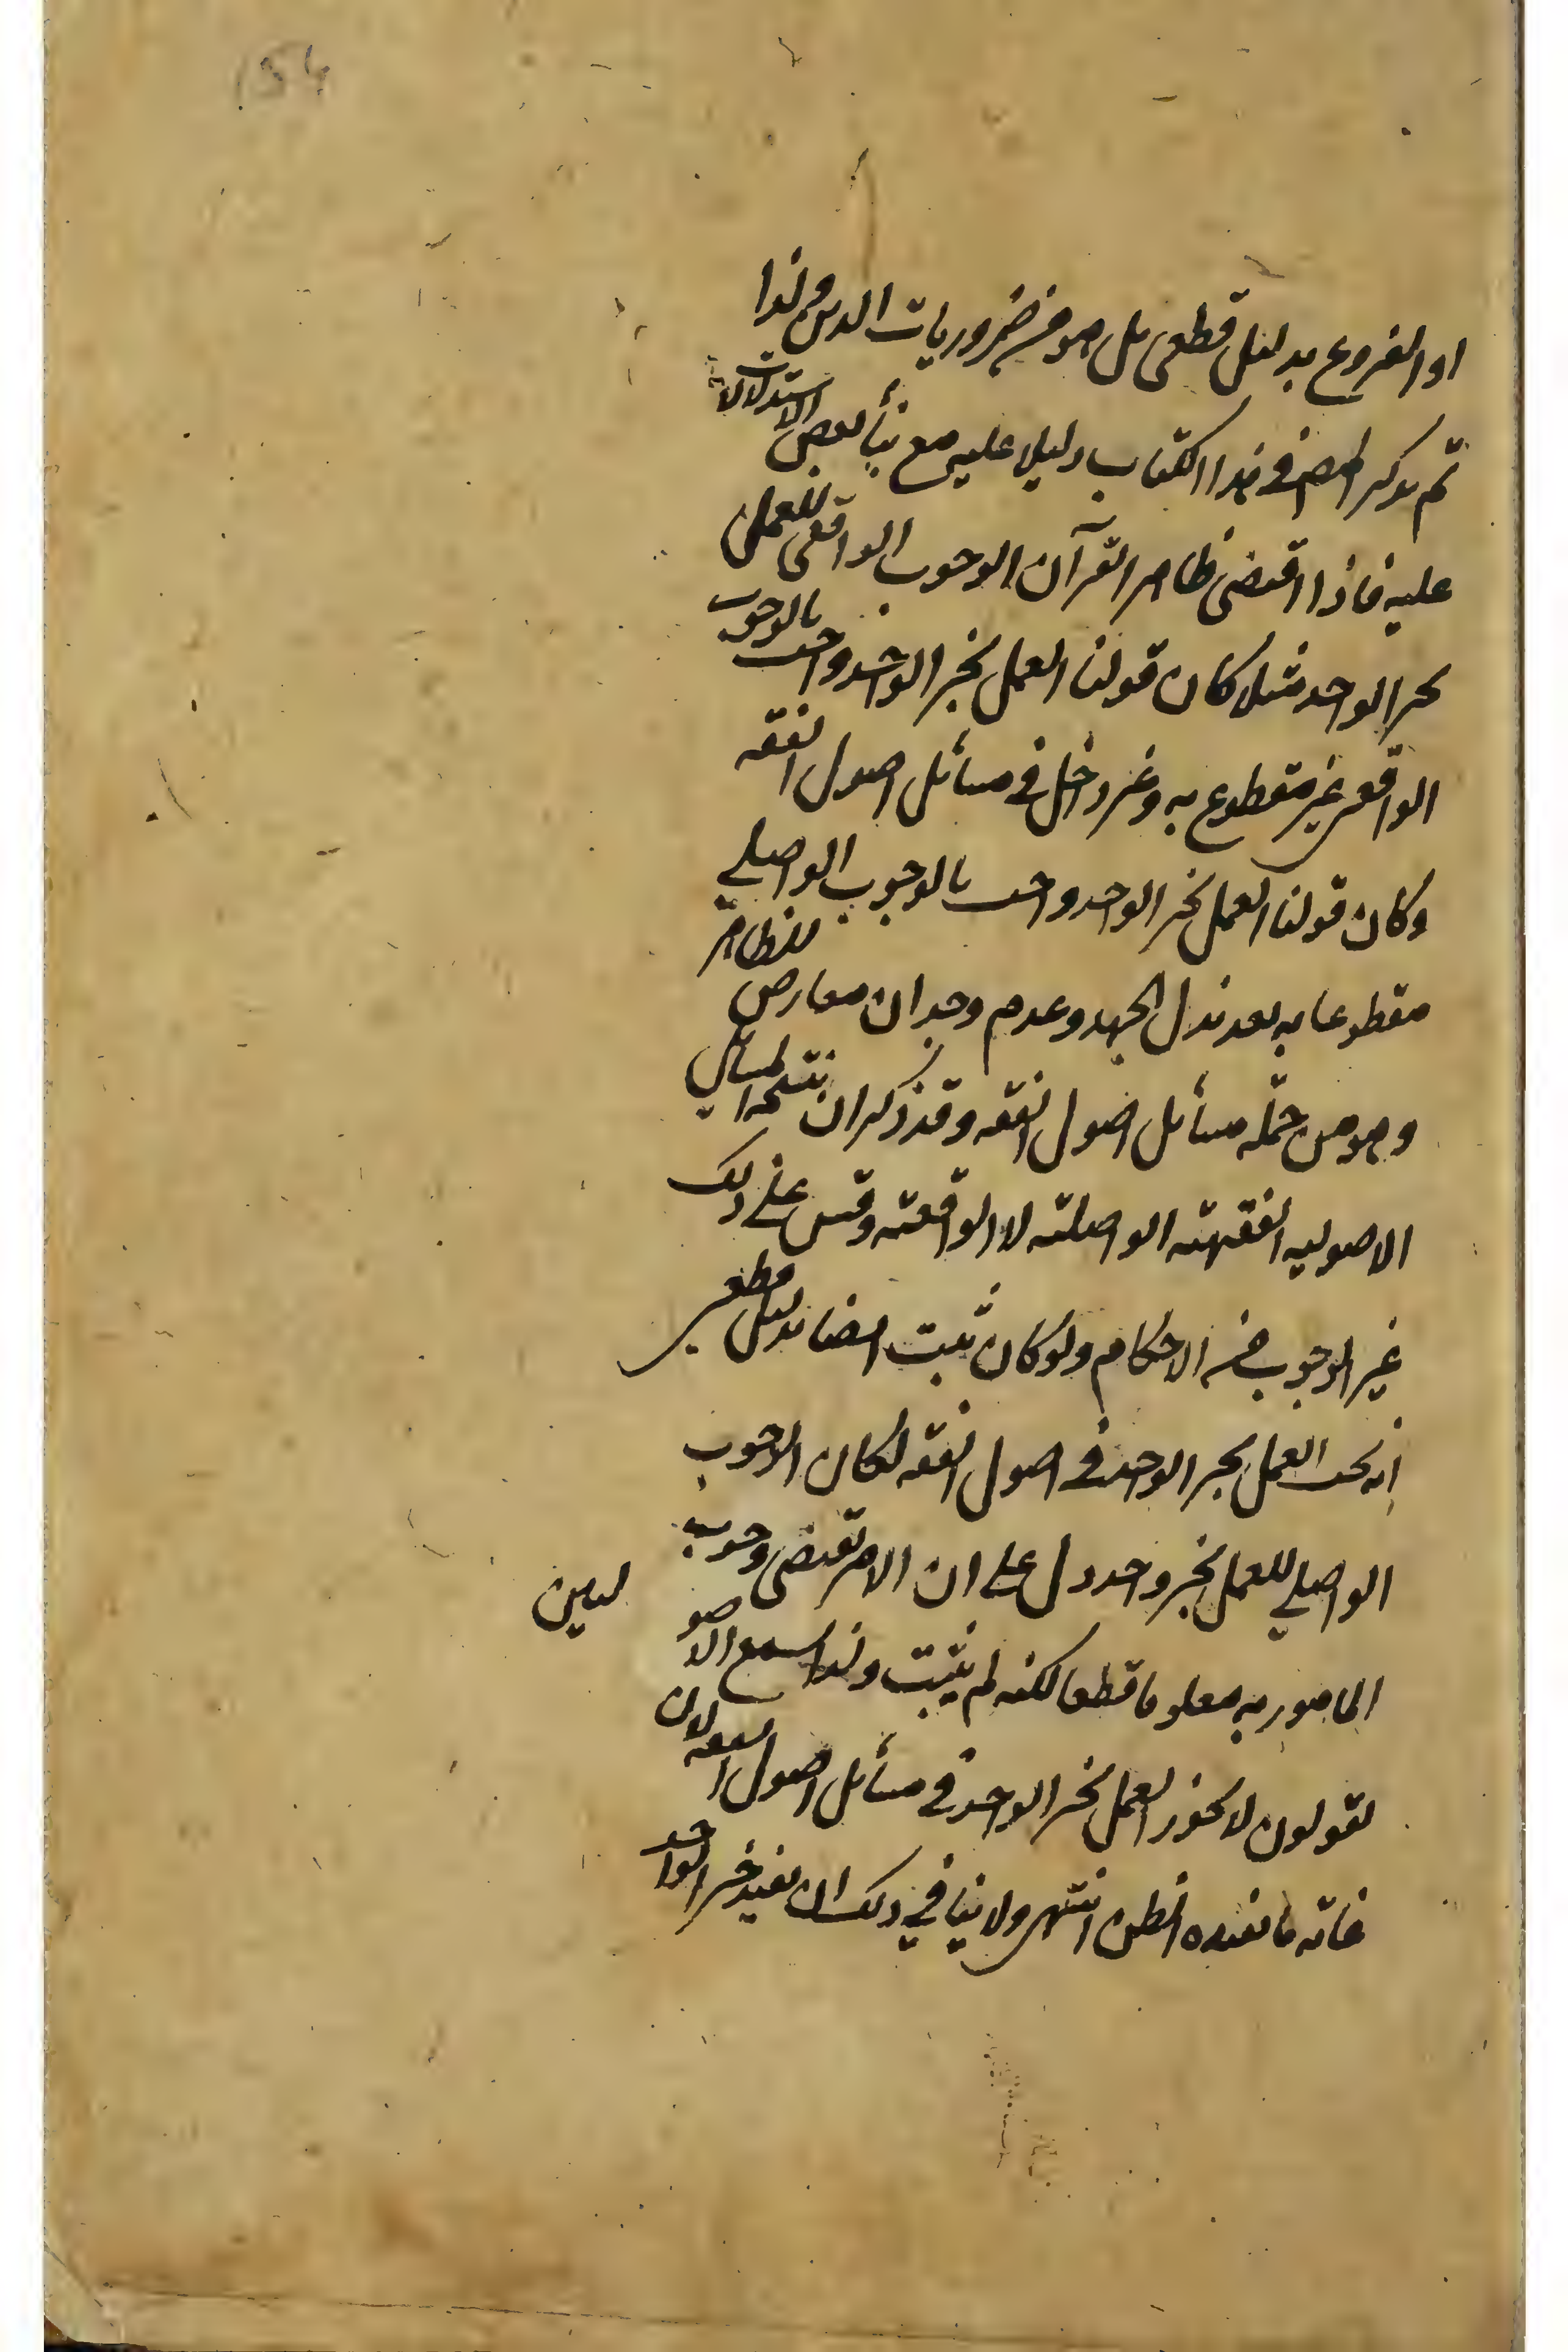 او الفروع بدليل قطعى بل هو من ضروريات الدين ولهذا
لم يذكر المص فى هذا الكتاب دليلا عليه مع بنأ بعض الاستدلالات
عليه فاذا اقتضى ظاهر القرآن الوجوب الواقعى للعمل
بخبر الواحد مثلا كان قولنا العمل بخبر الواحد واجب بالوجوب
الواقعى غير مقطوع به وغير داخل فى مسائل اصول الفقه
وكان قولنا العمل بخبر الواحد واجب بالوجوب الواصلي
مقطوعا به بعد بذل الجهد وعدم وجدان معارض للظاهر
وهو من جملة مسائل اصول الفقه وقد ذكر ان نتيجة المسائل
الاصولية الفقهية الواصلية لا الواقعية وقس على ذلك
غير الوجوب من الاحكام ولو كان ثبت ايضا بدليل قطعى
انه يجب العمل بخبر الواحد فى اصول الفقه لكان الوجوب
الواصلي للعمل بخبر واحد دل على ان الامر يقتضى وجوب
المامور به معلوما قطعا لكنه لم يثبت ولهذا اسمع الاصو
ليين
يقولون لا يجوز العمل بخبر الواحد فى مسائل اصول الفقه لان
غاية ما يفيده الظن انتهى ولا ينافي ذلك ان يفيد خبر الواحد